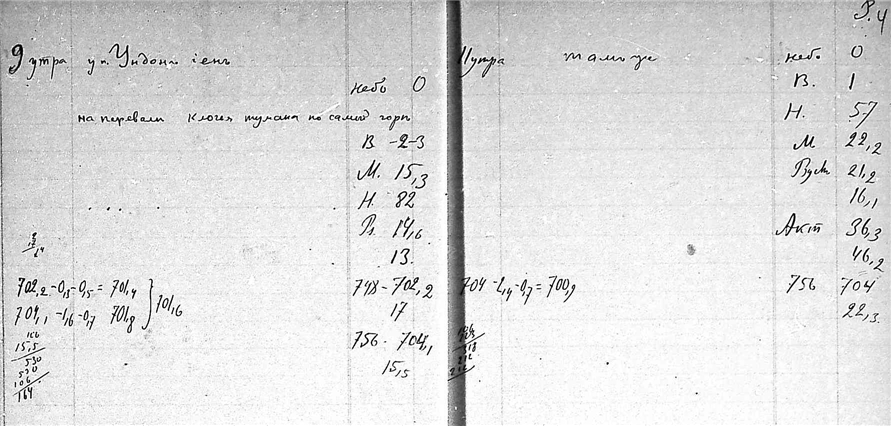 9 утра ук. Ундони
небо 0
на перевали клочья тумана по самой горы
В -2-3
М. 15,3
Н. 82
14,6
13.
702,2 -0,3 -0,5 = 701,4
704,1 -1,6 -0,7 701,8 } 701,6
748 - 702,2
17
756 - 704,1
15,5
166
15,5
530
530
106
164
11 утра там же
небо 0
В. 1
Н. 57
М 22,2
21,2
16,1
Акт 36,3
46,2
704 -2,4 -0,7 = 700,9
756 704
22,3
318
212
212